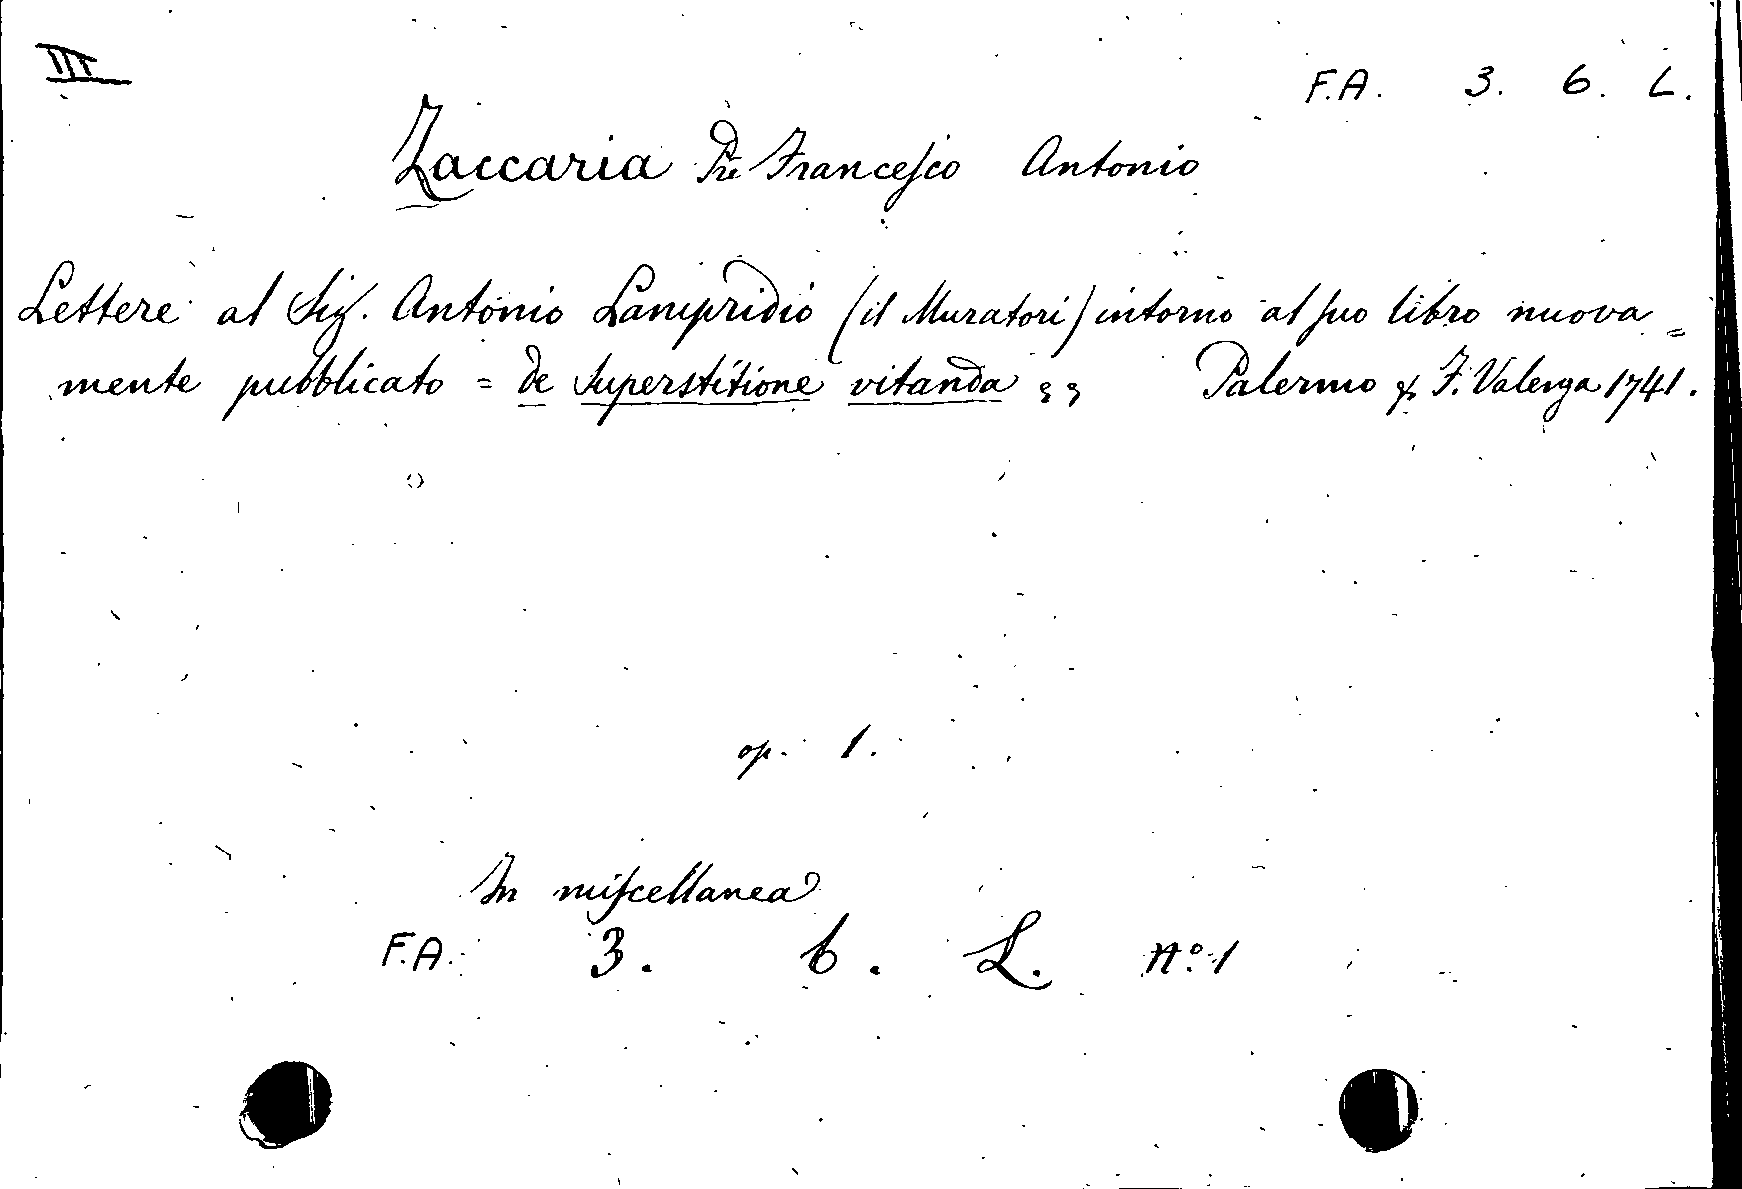 III
F.A. 3. 6. L.
Zaccaria Pre Francesco Antonio
Lettere al Sig. Antonio Lampridio (il Muratori) intorno al suo libro nuova=
mente pubblicato = de Superstitione vitanda == Palermo p. F. Valenza 1741.
op. 1.
In miscellanea
F.A. 3. 6. L. n.º 1